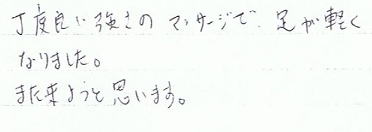 丁度良い強さのマッサージで、足が軽く
なりました。
また来ようと思います。